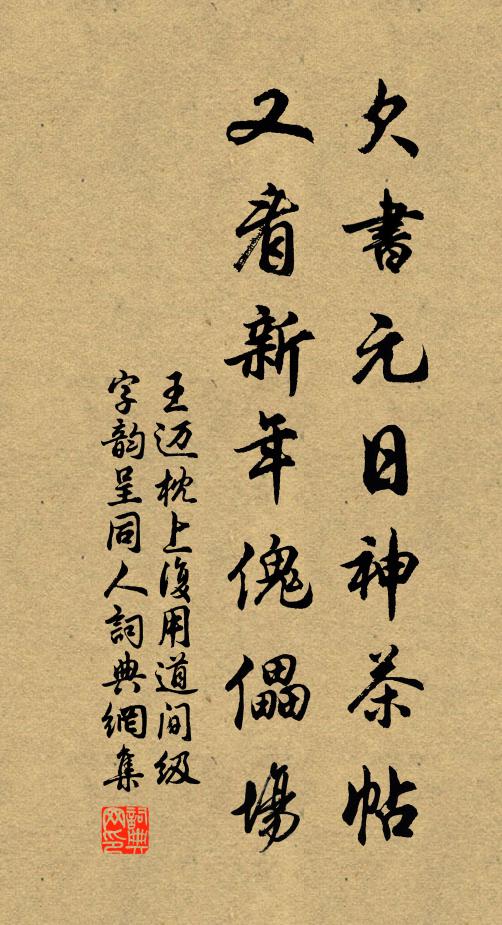 欠書元日神茶帖
又看新年傀儡場
王迈枕上復用道间级
字韵呈同人詞典網集
詞典网印